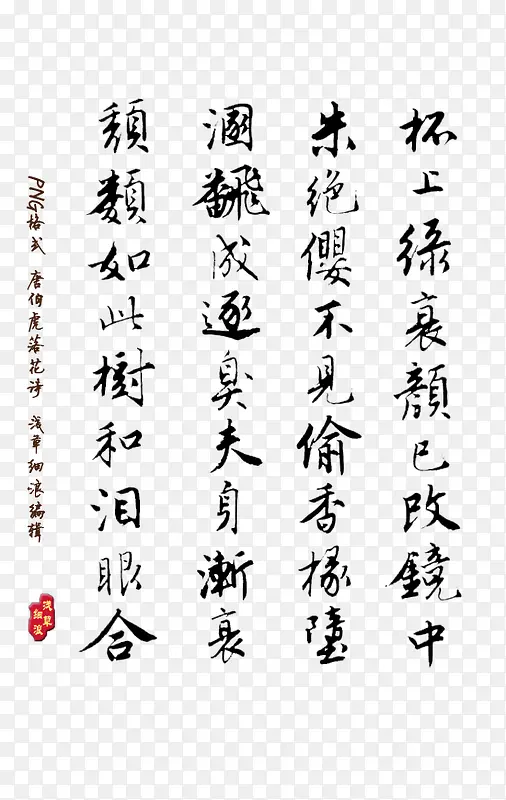 杯上綠衰顏已改鏡中
朱絕纓不見偷香掾墮
溷飜成逐臭夫身漸衰
頹類如此樹和泪眼合
PNG格式 唐伯虎落花诗 浅草细浪编辑
浅草
细浪